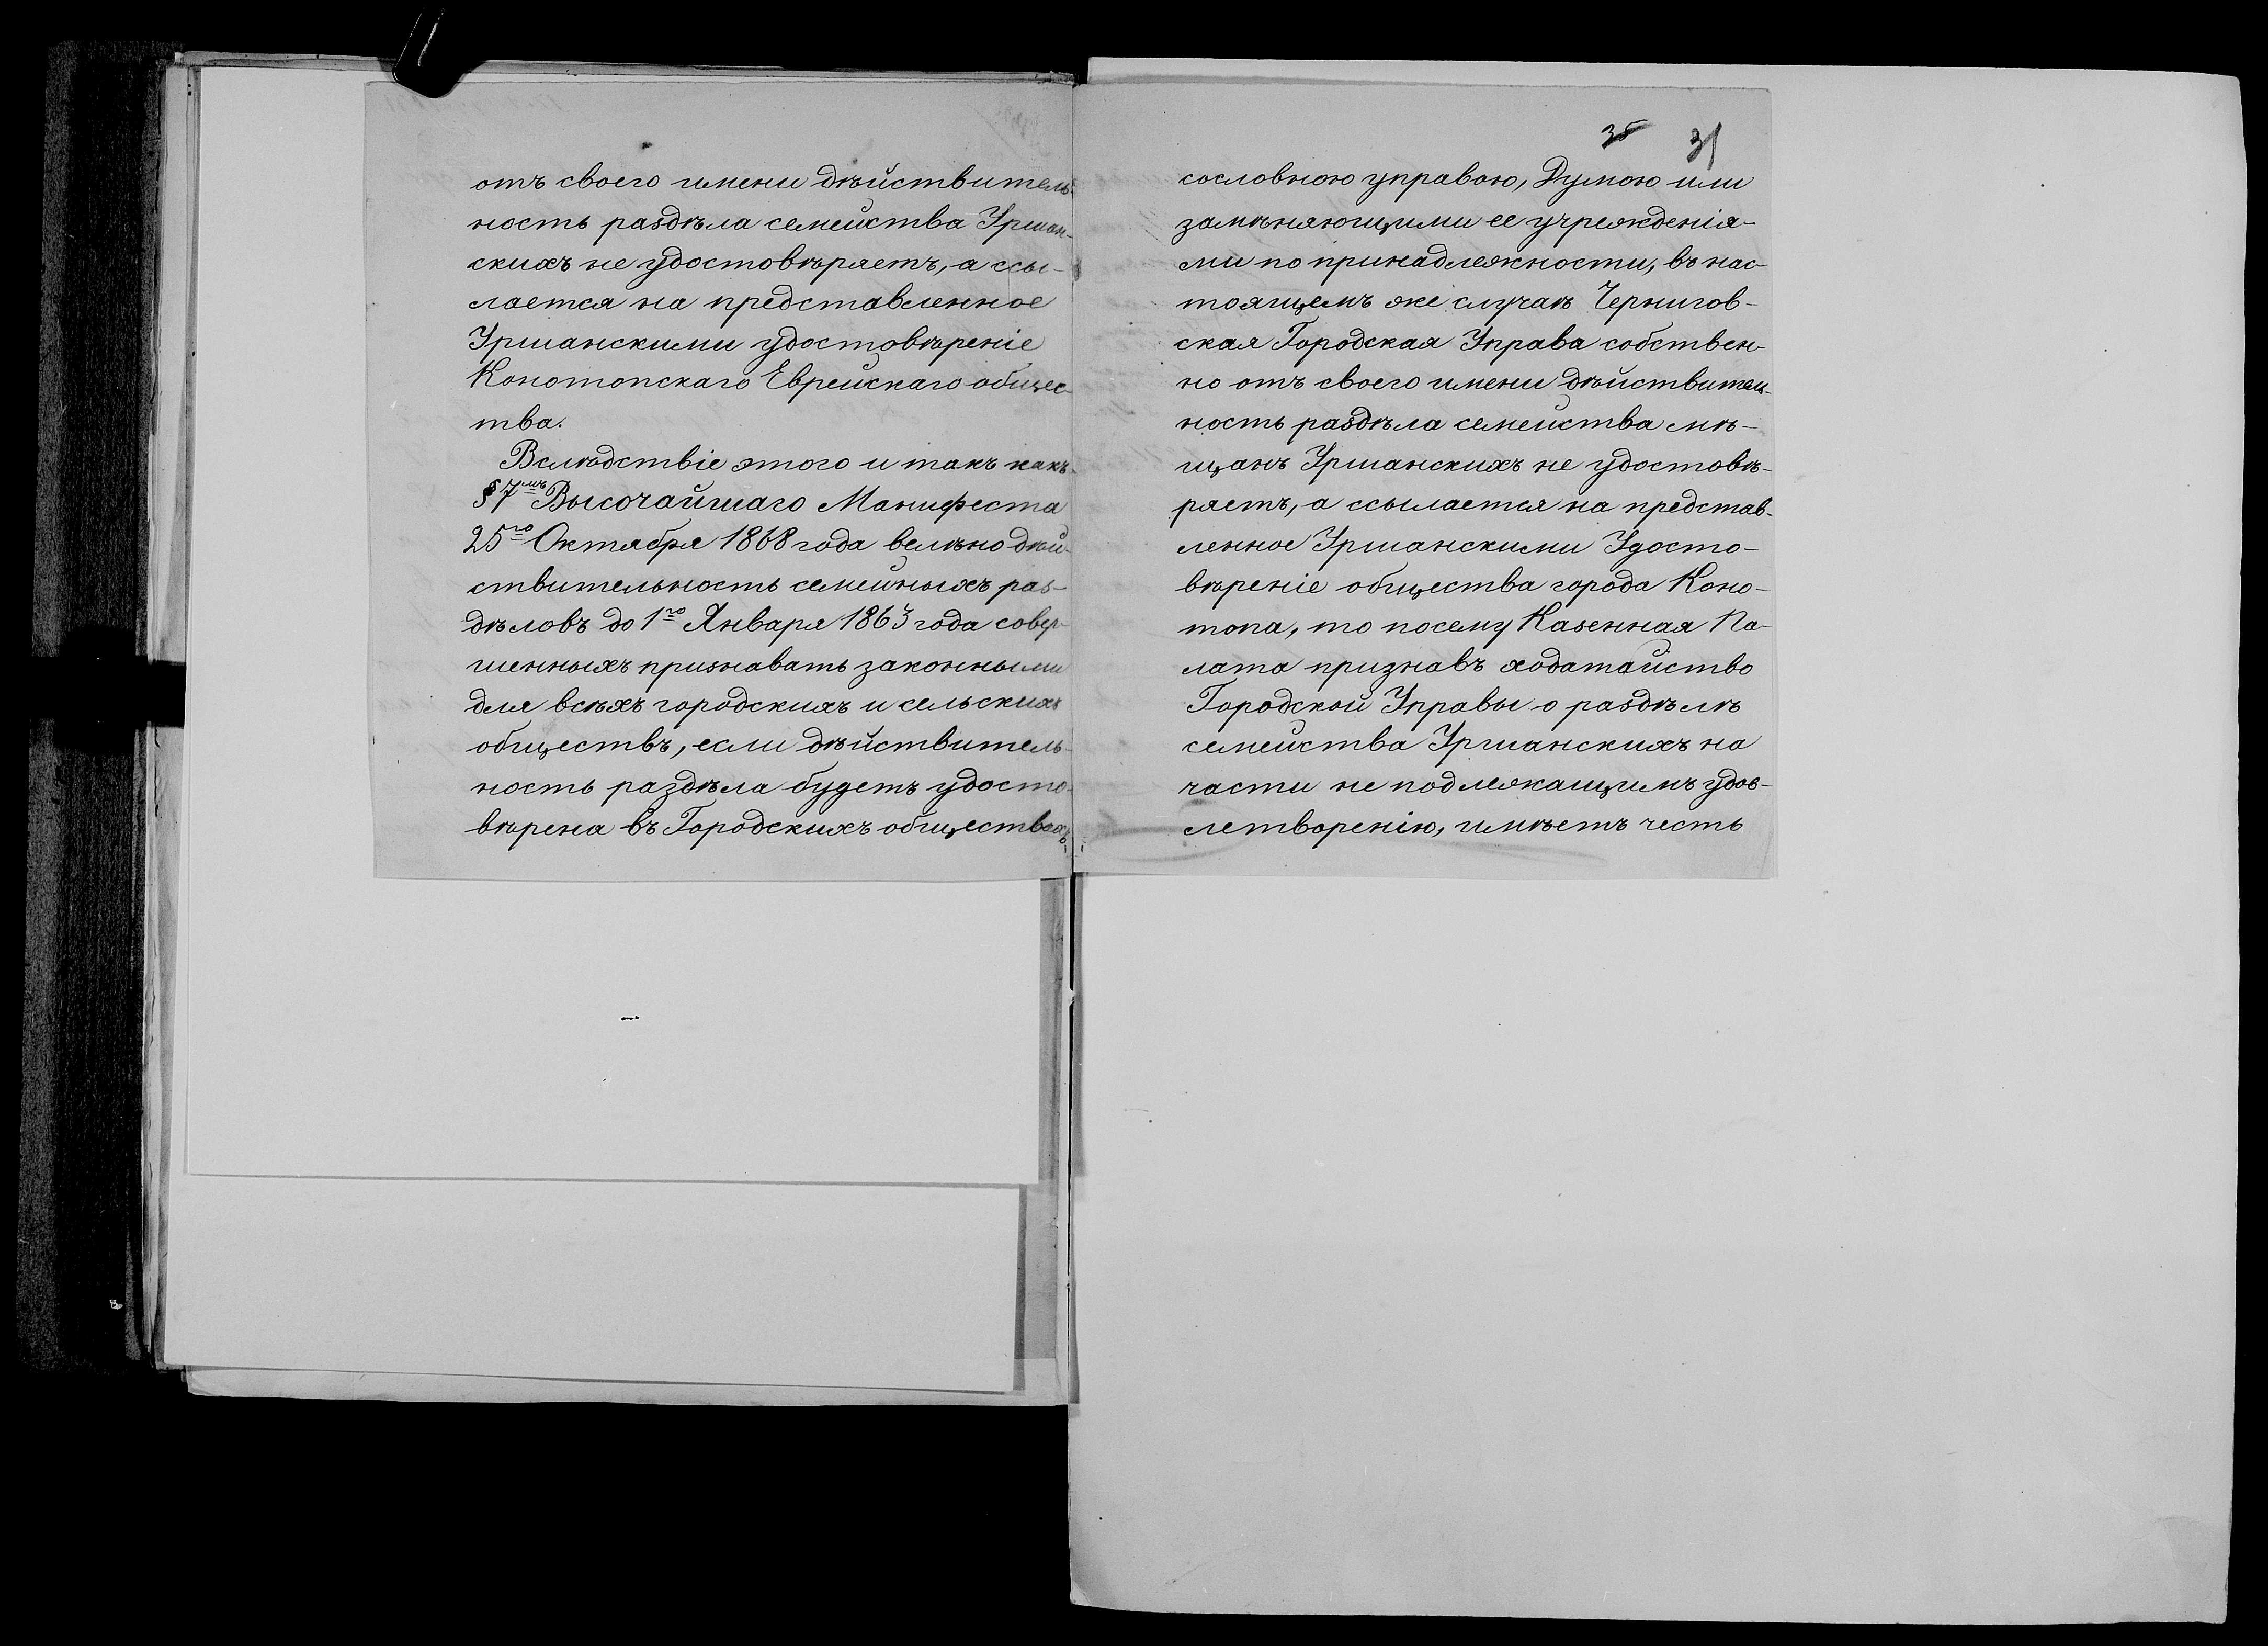 отъ своего имени дѣйствитель-
ность раздѣла семейства Уршан-
скихъ не удостовѣряетъ, а ссы-
лается на представленное
Уршанскими удостовѣреніе
Конотопскаго Еврейскаго общес-
тва.
Вслѣдствіе этого и такъ какъ
§ 7мъ Высочайшаго Манифеста
25го Октября 1868 года велѣно дѣй-
ствительность семейныхъ раз-
дѣловъ до 1го Января 1863 года совер-
шенныхъ признавать законными
для всѣхъ городскихъ и сельскихъ
обществъ, если дѣйствитель-
ность раздѣла будетъ удосто-
вѣрена въ Городскихъ обществахъ
35 31
сословною управою, Думою или
замѣняющими ее учрежденія-
ми по принадлежности, въ нас-
тоящемъ же случаѣ Чернигов-
ская Городская Управа собствен-
но отъ своего имени дѣйствитель-
ность раздѣла семейства мѣ-
щанъ Уршанскихъ не удостовѣ-
ряетъ, а ссылается на представ-
ленное Уршанскими Удосто-
вѣреніе общества города Коно-
топа, то посему Казенная Па-
лата признавъ ходатайство
Городской Управы о раздѣлѣ
семейства Уршанскихъ на
части не подлежащимъ удов-
летворенію, имѣетъ честь